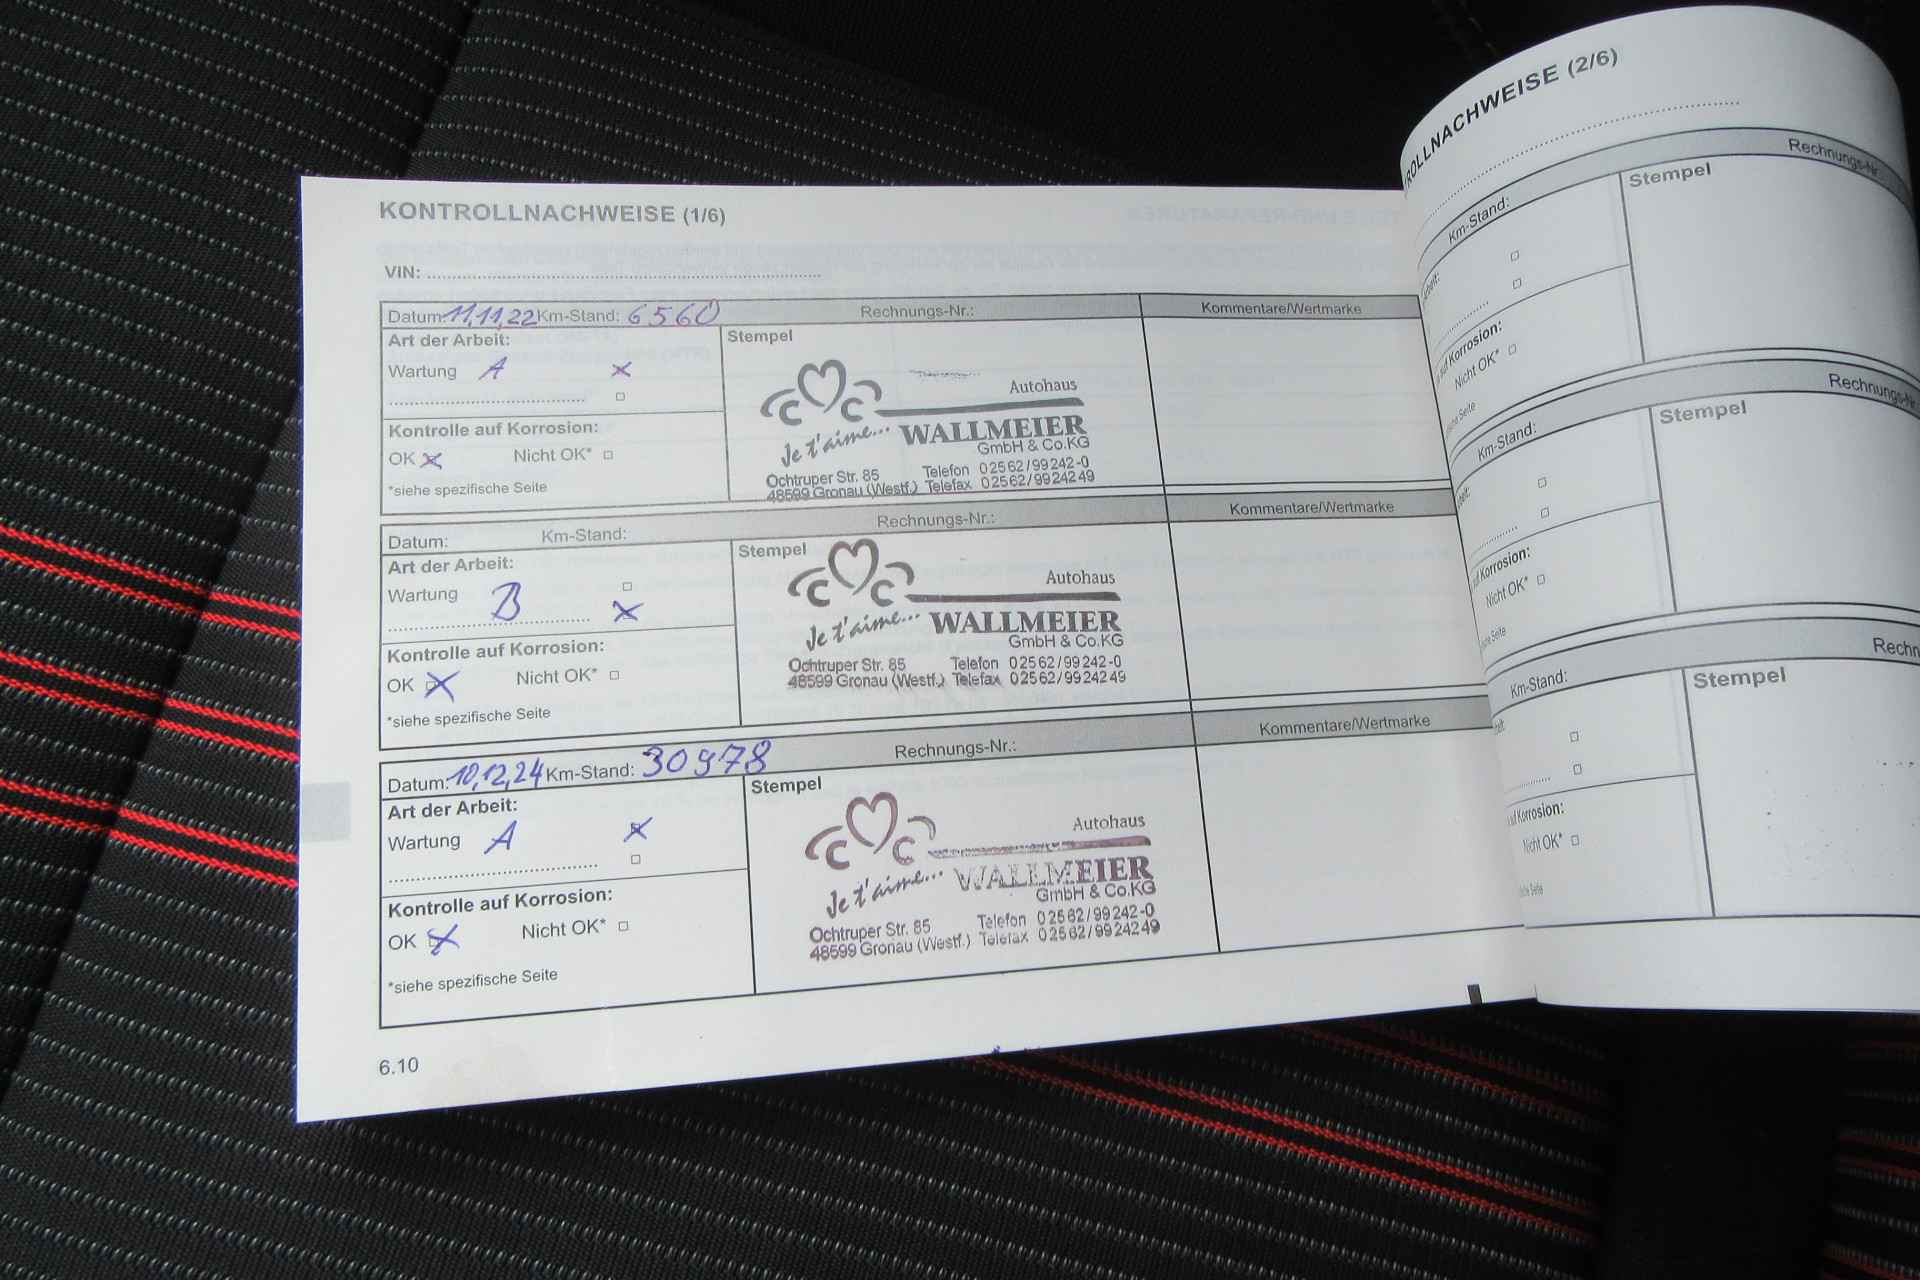 KONTROLLNACHWEISE (1/6)
VIN:
Datum: 11,11,22 Km-Stand: 6560 Rechnungs-Nr.: Kommentare/Wertmarke
Art der Arbeit: Stempel
Wartung A x
Autohaus
C C
Je t'aime... WALLMEIER
GmbH & Co.KG
Ochtruper Str. 85 Telefon 02562/99242-0
48599 Gronau (Westf.) Telefax 02562/9924249
Kontrolle auf Korrosion:
OK x Nicht OK*
*siehe spezifische Seite
Datum: Km-Stand: Rechnungs-Nr.: Kommentare/Wertmarke
Art der Arbeit: Stempel
Wartung B x
Autohaus
C C
Je t'aime... WALLMEIER
GmbH & Co.KG
Ochtruper Str. 85 Telefon 02562/99242-0
48599 Gronau (Westf.) Telefax 02562/9924249
Kontrolle auf Korrosion:
OK x Nicht OK*
*siehe spezifische Seite
Datum: 10,12,24 Km-Stand: 30978 Rechnungs-Nr.: Kommentare/Wertmarke
Art der Arbeit: Stempel
Wartung A x
Autohaus
C C
Je t'aime... WALLMEIER
GmbH & Co.KG
Ochtruper Str. 85 Telefon 02562/99242-0
48599 Gronau (Westf.) Telefax 02562/9924249
Kontrolle auf Korrosion:
OK x Nicht OK*
*siehe spezifische Seite
6.10
ROLLNACHWEISE (2/6)
Km-Stand: Rechnungs-Nr
Stempel
Korrosion:
Nicht OK*
Seite
Km-Stand: Rechnungs-Nr.
Stempel
Korrosion:
Nicht OK*
Seite
Km-Stand: Rechn
Stempel
auf Korrosion:
Nicht OK*
Seite